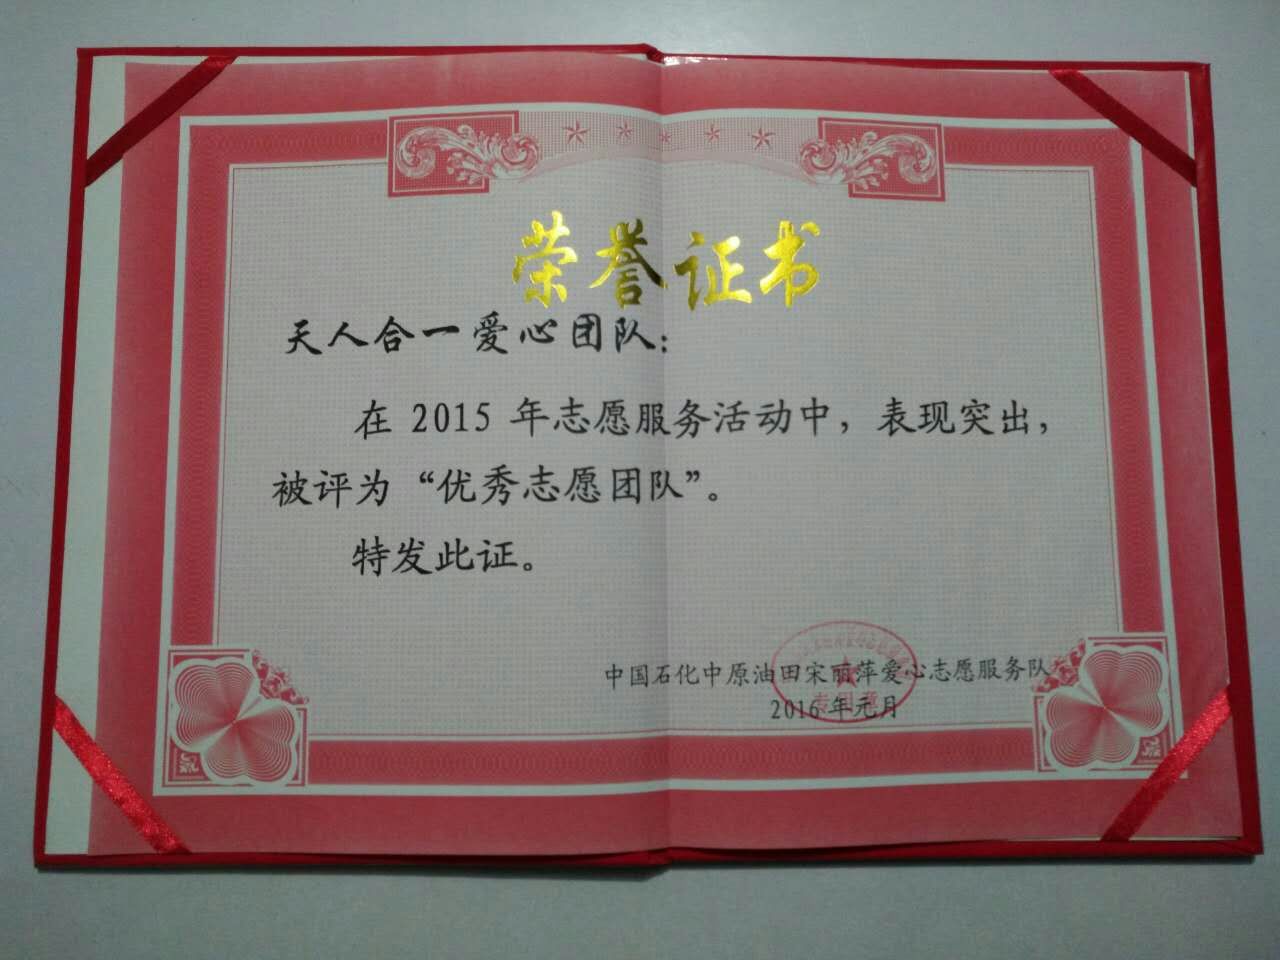 荣誉证书
天人合一爱心团队：
在 2015 年志愿服务活动中，表现突出，
被评为 “优秀志愿团队”。
特发此证。
中国石化中原油田宋丽萍爱心志愿服务队
2016 年元月
专用章